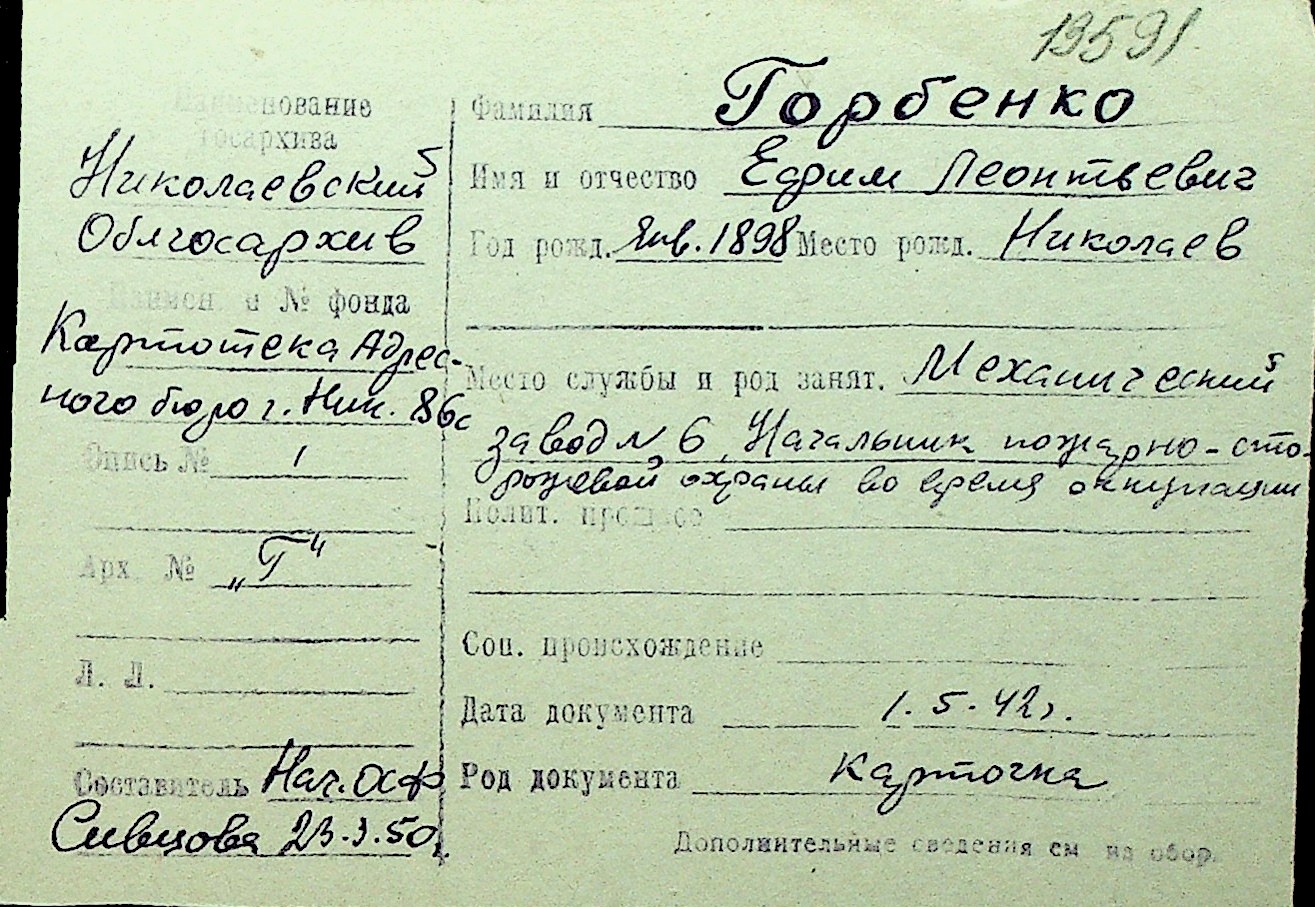 13591
Наименование
Госархива
Николаевский
Облгосархив
Наимен и № фонда
Картотека Адрес-
ного бюро г. Ник. 86с
Опись № 1
Арх. № „Г"
Л. Л.
Составитель Нач. ОСФ
Сивцова 23.3.50г.
Фамилия Горбенко
Имя и отчество Ефим Леонтьевич
Год рожд. Янв. 1898 Место рожд. Николаев
Место службы и род занят. Механический
завод № 6, Начальник пожарно-сто-
рожевой охраны во время оккупации
Полит. прошлое
Соц. происхождение
Дата документа 1.5.42г.
Род документа карточка
Дополнительные сведения см на обор.